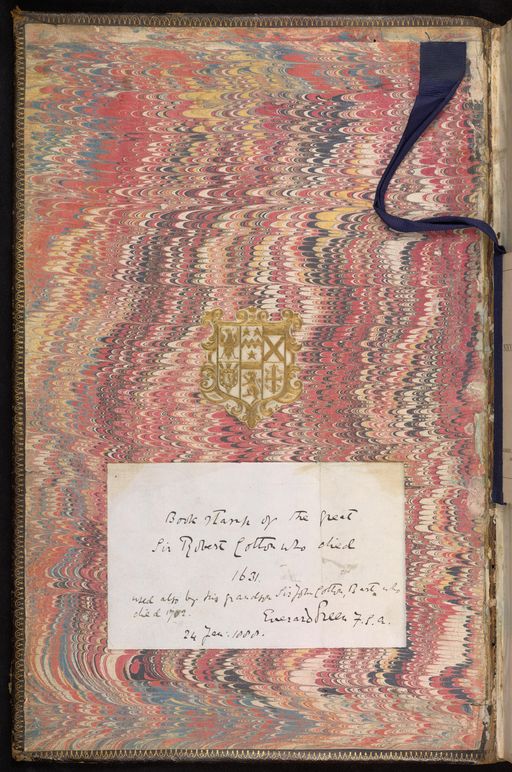 Book stamp of the great
Sir Robert Cotton who died
1631.
used also by his grandson Sir John Cotton, Bart, who
died 1702.
Everard Green F.S.A.
24 Jan: 1888.